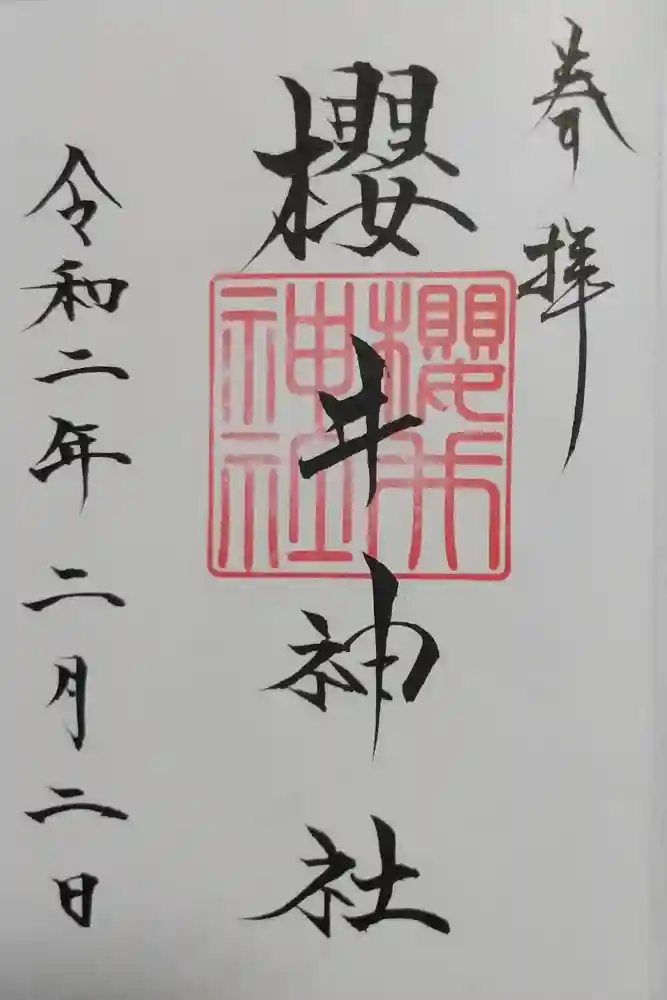 奉拝
櫻井神社
令和二年二月二日
櫻井
神社